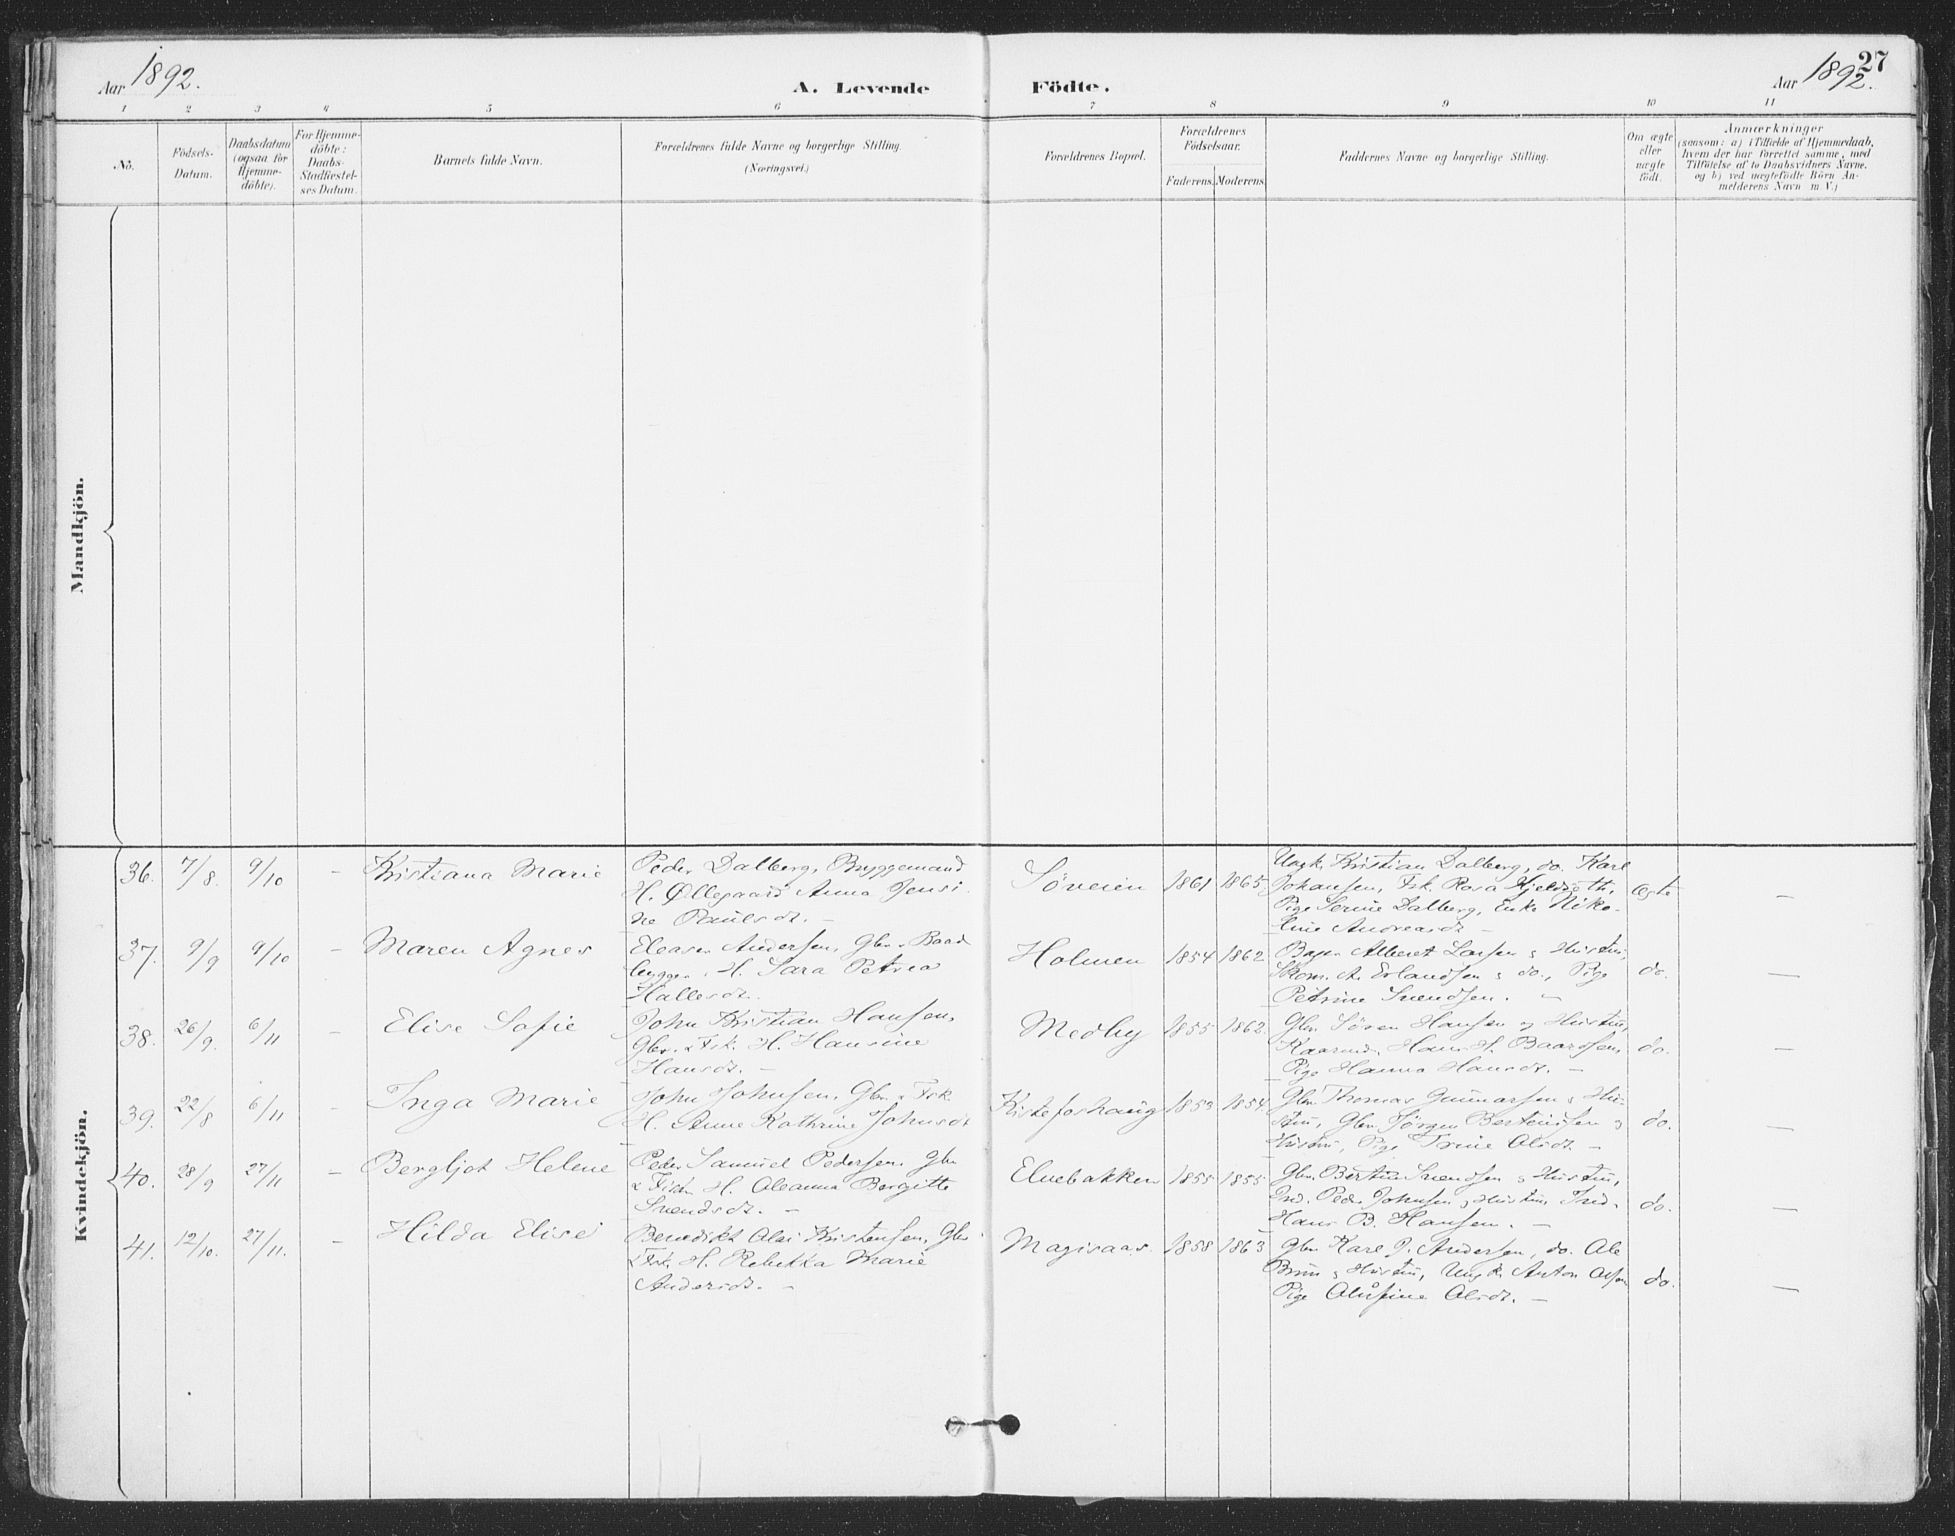 Aar 1892.
A. Levende Födte.
Aar 1892.
27
1 2 3 4 5 6 7 8 9 10 11
No.
Födsels-
Datum.
Daabsdatum
(ogsaa for
Hjemme-
döbte).
For Hjemme-
döbte:
Daabs-
Stadfæstel-
ses Datum.
Barnets fulde Navn.
Forældrenes fulde Navne og borgerlige Stilling.
(Næringsvei.)
Forældrenes Bopæl.
Forældrenes
Födselsaar.
Faderens. Moderens.
Faddernes Navne og borgerlige Stilling.
Om ægte
eller
uægte
födt.
Anmærkninger
(saasom: a) i Tilfælde af Hjemmedaab,
hvem der har forrettet samme, med
Tilföielse af to Daabsvidners Navne.
og b) ved uægtefödte Börn An-
melderens Navn m. V.)
Mandkjön.
Kvindekjön.
36. 7/8. 9/10 - Kristiana Marie
Peder Dalberg, Byggemand
H. Øllegaard Anna Jensi-
ne Paulsdt. -
Söveien 1861 1865
Ungk. Kristian Dalberg, do. Karl
Johansen, Fsk. Rosa Hjeldseth,
Pige Serine Dalberg, Enke Niko-
line Andreasdt -
ægte -
37. 9/9 9/10 - Maren Agnes
Eleaser Andersen, Gbr. Baad
bygger, H. Sara Petrea
Hallesdt.
Holmen 1854 1862
Bager Albert Larsen & Hustru,
Skom. A. Erlandsen & do., Pige
Petrine Svendsen. -
do. -
38. 26/9. 6/11 - Elise Sofie
John Kristian Hansen,
Gbr. & Fsk. H. Hansine
Hansdt. -
Medby 1855 1862.
Gbr. Sören Hansen og Hustru,
Kaarmd. Hans H. Baardsen,
Pige Hanna Hansdt. -
do. -
39. 22/8 6/11 - Inga Marie
John Johnsen, Gbr. & Fsk
H. Anne Kathrine Johnsdt
Kistefoshaug 1853 1854.
Gbr. Thomas Gunnarsen & Hu-
stru, Gbr. Jörgen Berteussen &
Hustru, Pige Trine Olsdt. -
do. -
40. 28/9 27/11 - Bergljot Helene
Peder Samuel Pedersen, Gbr
& Fisk. H. Oleanna Bergitte
Svendsdt. -
Elvebakken 1855 1855
Gbr. Svendsen & Hustru,
Ind. Peder Johnsen & Hustru, Ind.
Hans B. Hansen. -
do. -
41. 12/10. 27/11. - Hilda Elise
Benedikt Olai Kristensen, Gbr
& Fsk. H. Rebekka Marie
Andersdt. -
Magisaas. 1858 1863
Gbr. Karl J. Andersen, do. Ole
Brun & Hustru, Ungk. Anton Olsen
Pige Olufine Olsdt. -
do. -